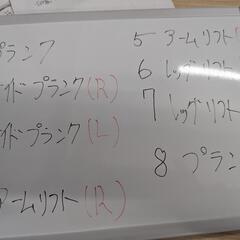 プランク
イドプランク(R)
イドプランク(L)
アームリフト(R)
5 アームリフト
6 レッグリフト
7 レッグリフト
8 プラン